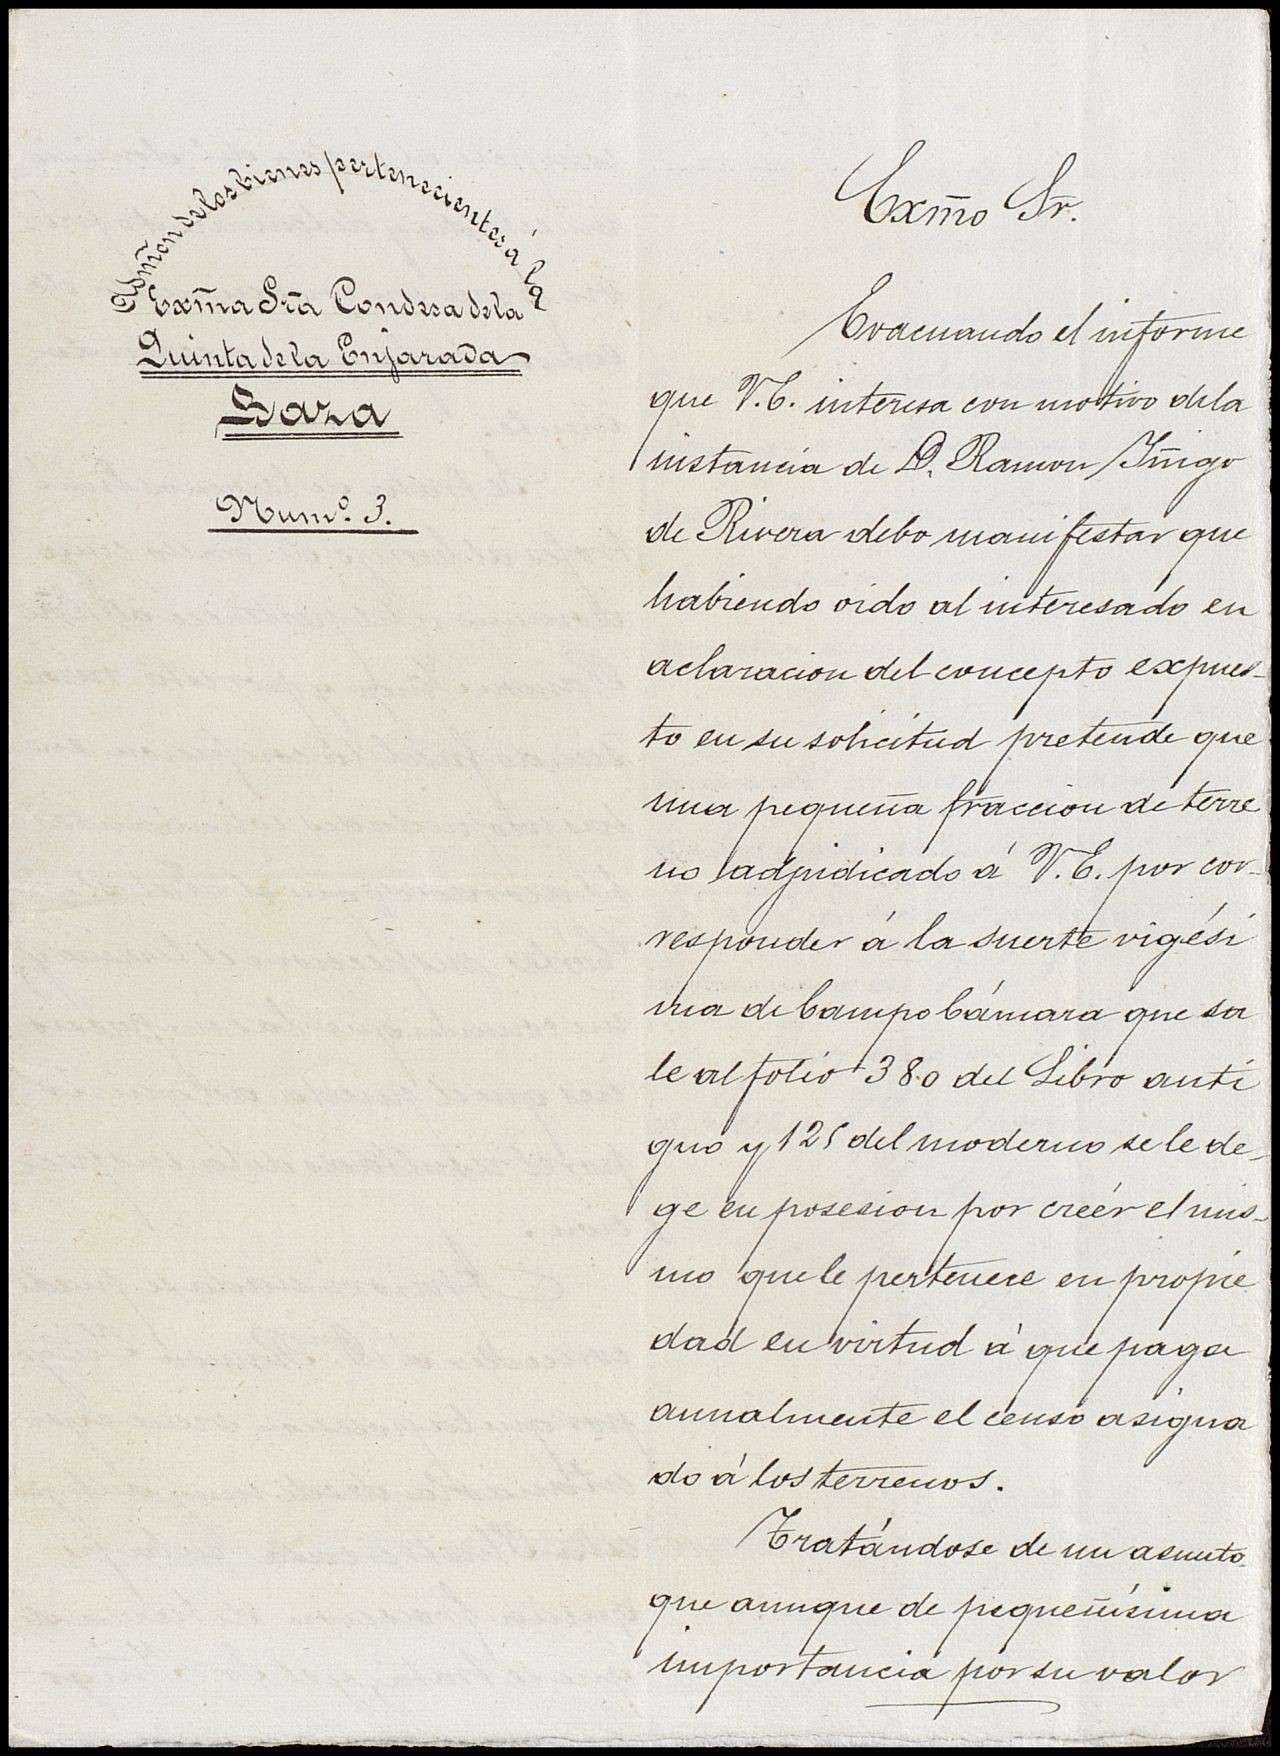 Admōn de los bienes pertenecientes á la
Exm̄a Srā Condesa de la
Quinta de la Enjarada
Baza
Numº. 3.
Exm̄o Sr̄.
Evacuando el informe
que V.E. interesa con motivo dela
instancia de D. Ramon Iñigo
de Rivera debo manifestar que
habiendo oido al interesado en
aclaracion del concepto expues-
to en su solicitud pretende que
una pequeña fraccion de terre
no adjudicado á V.E. por cor-
responder á la suerte vigési
ma de Campo Cámara que sa
le al folio 380 del Libro anti
guo y 125 del moderno se le de-
ge en posesion por creér el mis-
mo que le pertenece en propie
dad en virtud á que paga
annalmente el censo asigna
do á los terrenos.
Tratándose de un asunto
que aunque de pequeñísima
importancia por su valor